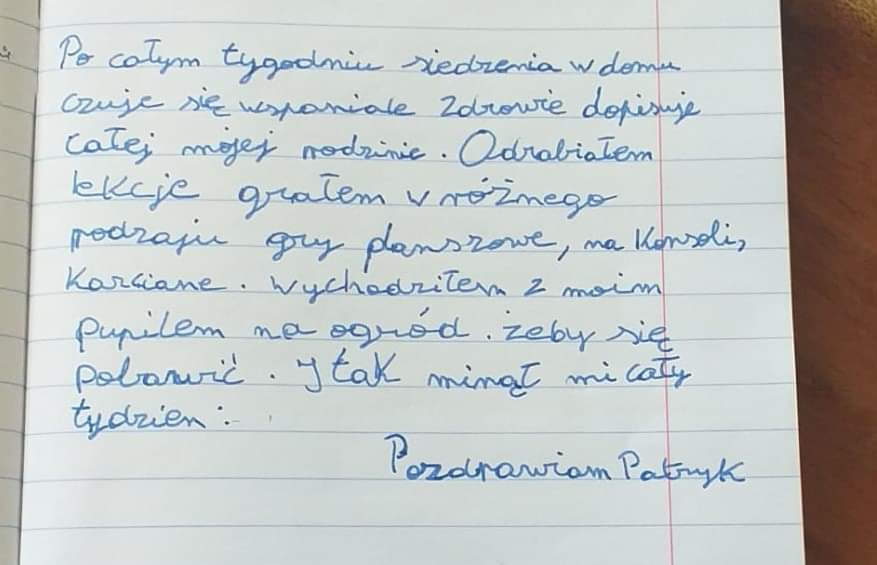 Po całym tygodniu siedzenia w domu
czuje się wspaniale Zdrowie dopisuje
całej mojej rodzinie. Odrabiałem
lekcje grałem w różnego
rodzaju gry planszowe, na Konsoli,
Karciane. Wychodziłem z moim
pupilem na ogród. żeby się
pobawić. I tak minął mi cały
tydzien:
Pozdrawiam Patryk